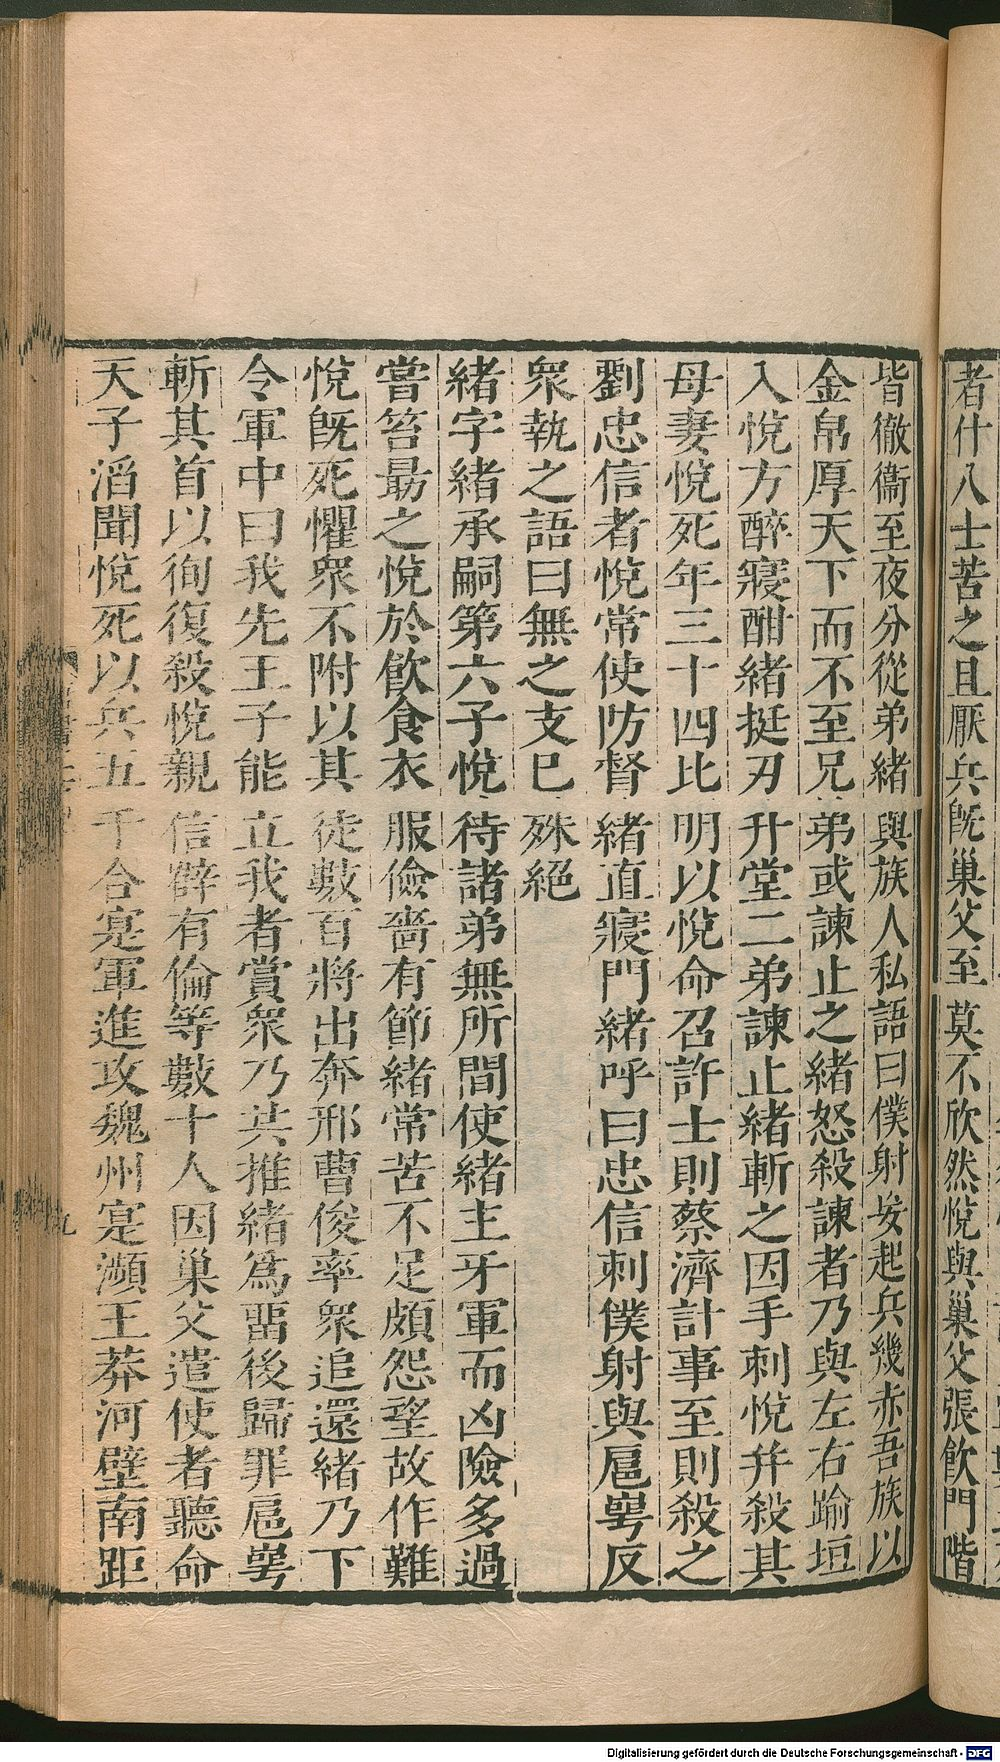 者什八士苦之且厭兵旣巢父至莫不欣然悅與巢父張飮門階
皆徹衞至夜分從弟緒與族人私語曰僕射妄起兵幾赤吾族以
金帛厚天下而不至兄弟或諫止之緒怒殺諫者乃與左右踰垣
入悅方醉寢酣緒挺刃升堂二弟諫止緒斬之因手刺悅幷殺其
母妻悅死年三十四比明以悅命召許士則蔡濟計事至則殺之
劉忠信者悅常使防督緒直寢門緒呼曰忠信刺僕射與扈崿反
衆執之語曰無之支已殊絕
緒字緒承嗣第六子悅待諸弟無所間使緒主牙軍而凶險多過
嘗笞勗之悅於飮食衣服儉嗇有節緒常苦不足頗怨望故作難
悅旣死懼衆不附以其徒數百將出奔邢曹俊率衆追還緒乃下
令軍中曰我先王子能立我者賞衆乃共推緒爲畱後歸罪扈崿
斬其首以徇復殺悅親信薛有倫等數十人因巢父遣使者聽命
天子滔聞悅死以兵五千合寔軍進攻魏州寔瀕王莽河壁南距
九
Digitalisierung gefördert durch die Deutsche Forschungsgemeinschaft - DFG